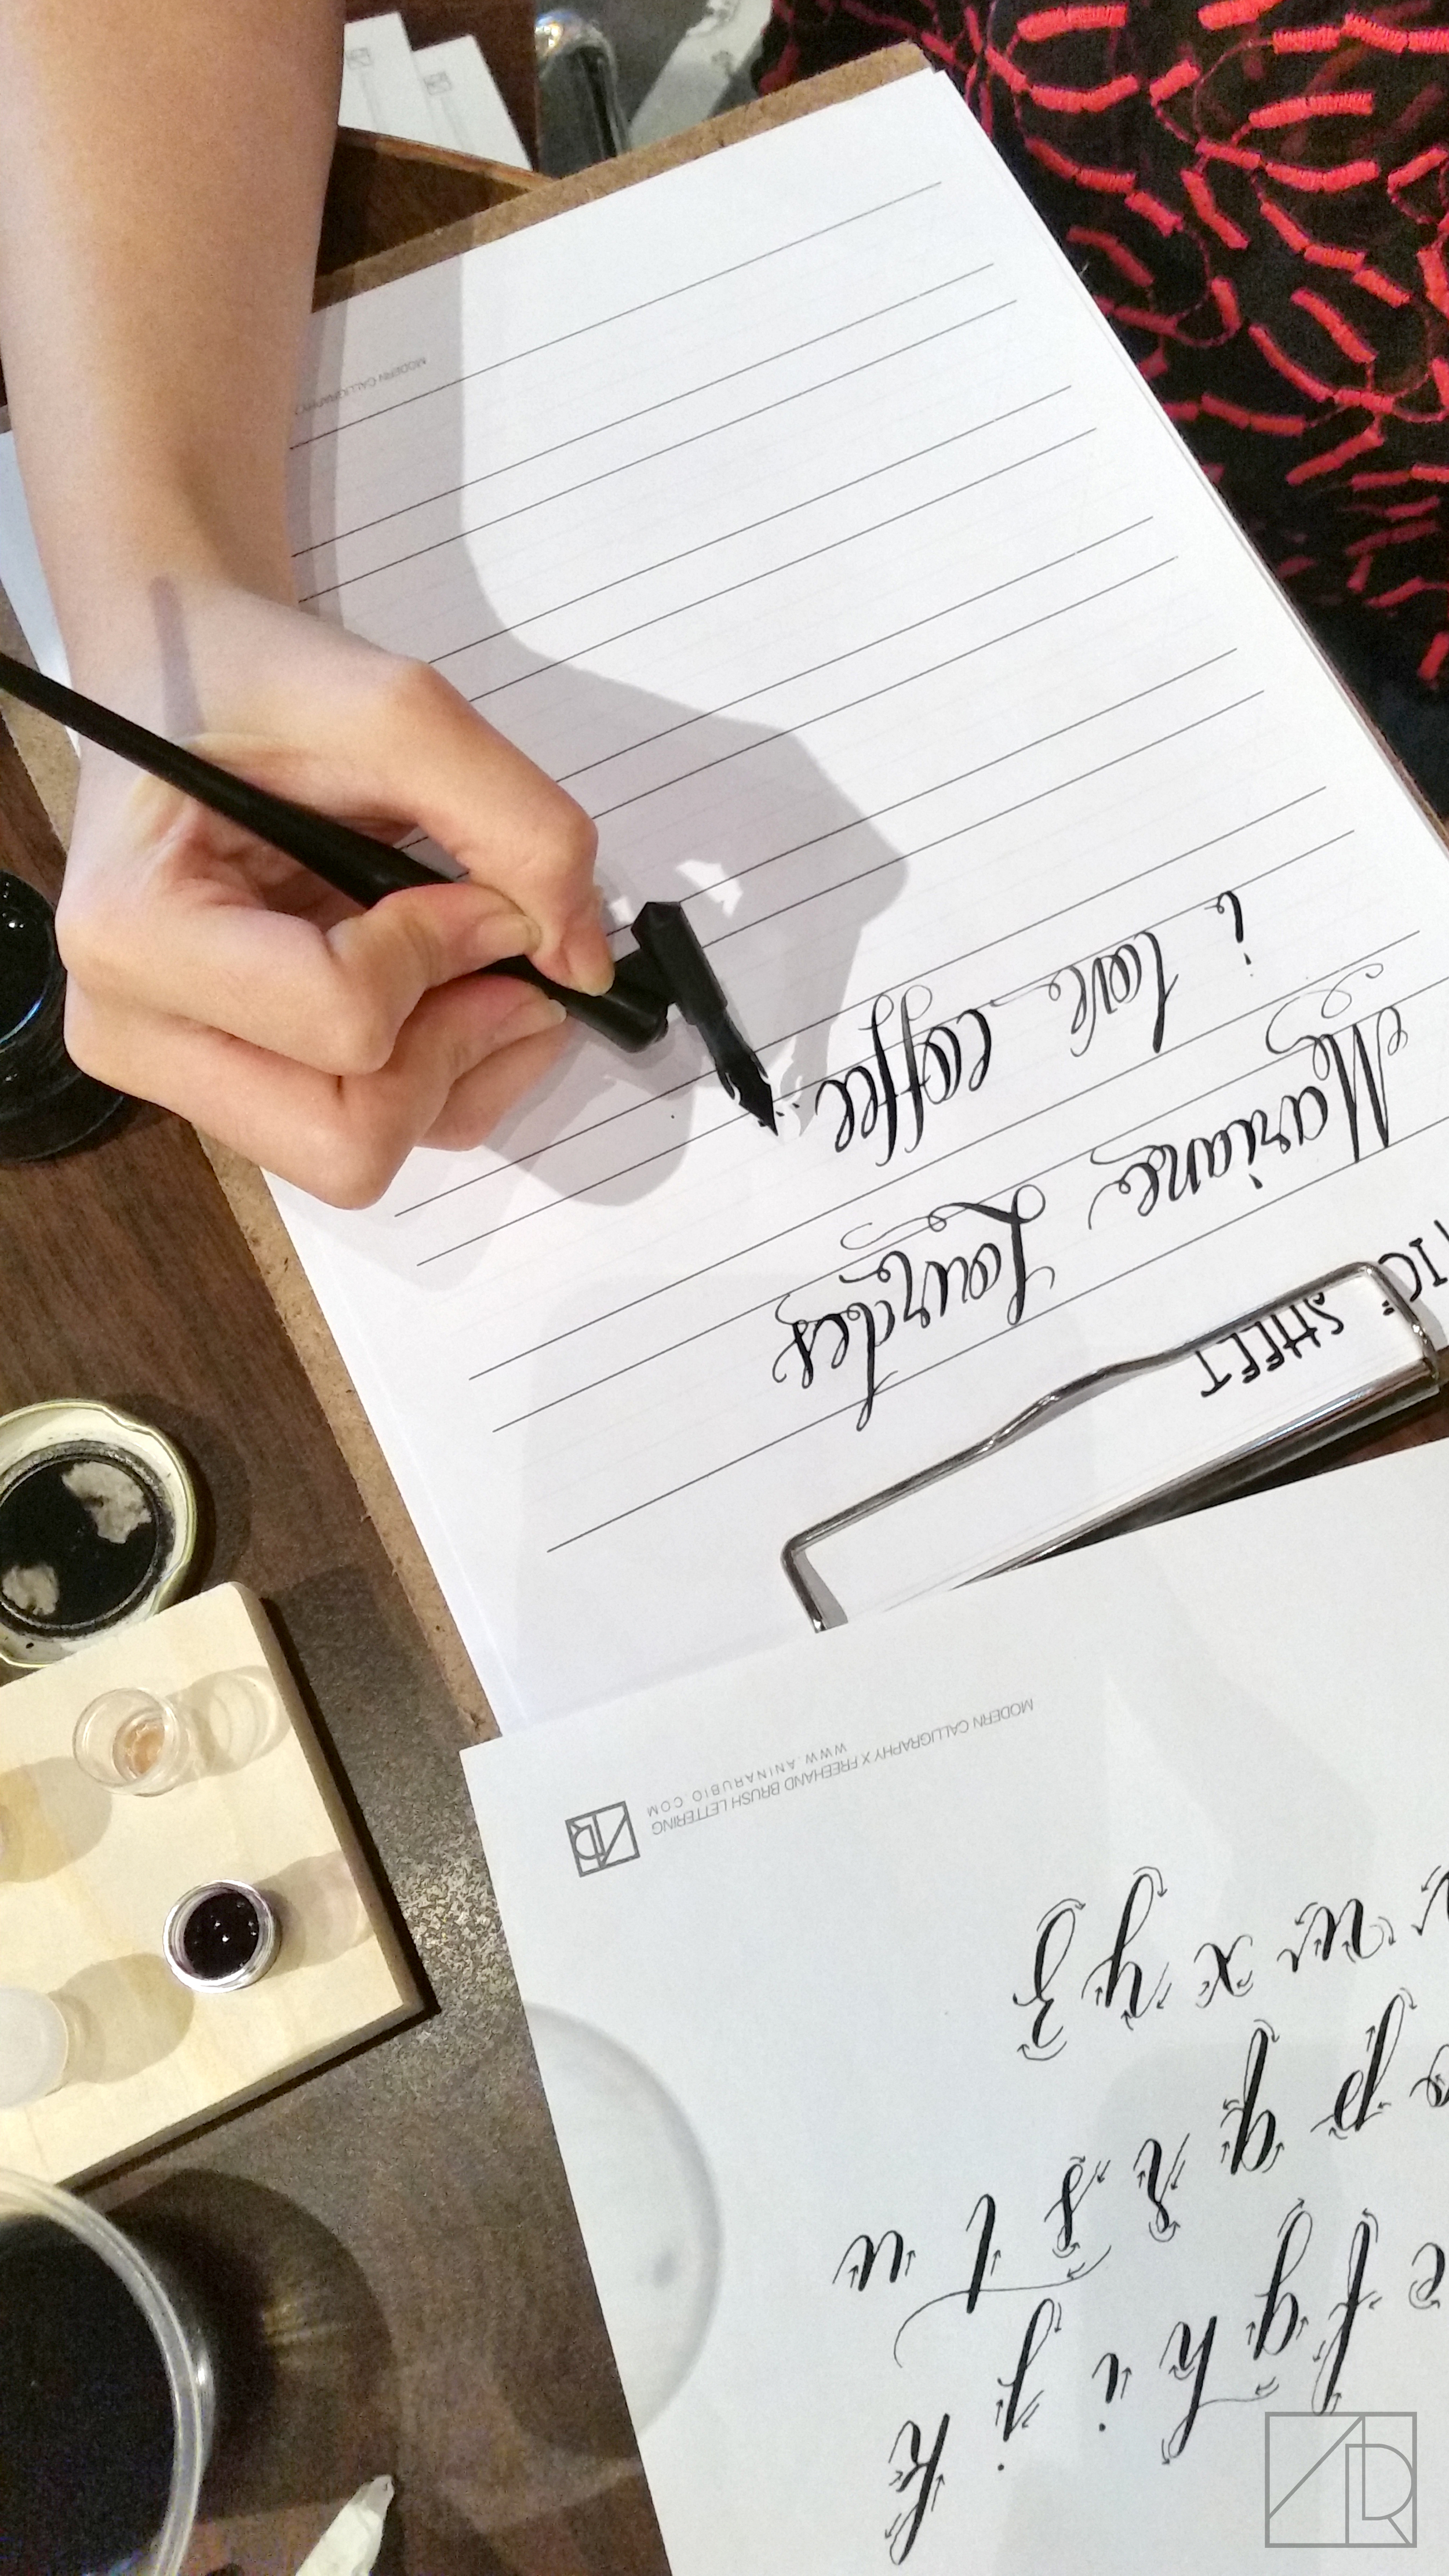 TICE SHEET
Mariane Lourdes
i love coffee
MODERN CALLIGRAPHY
e f g h i j k
p q r s t u
v w x y z
MODERN CALLIGRAPHY X FREEHAND BRUSH LETTERING
WWW.ANINARUBIO.COM